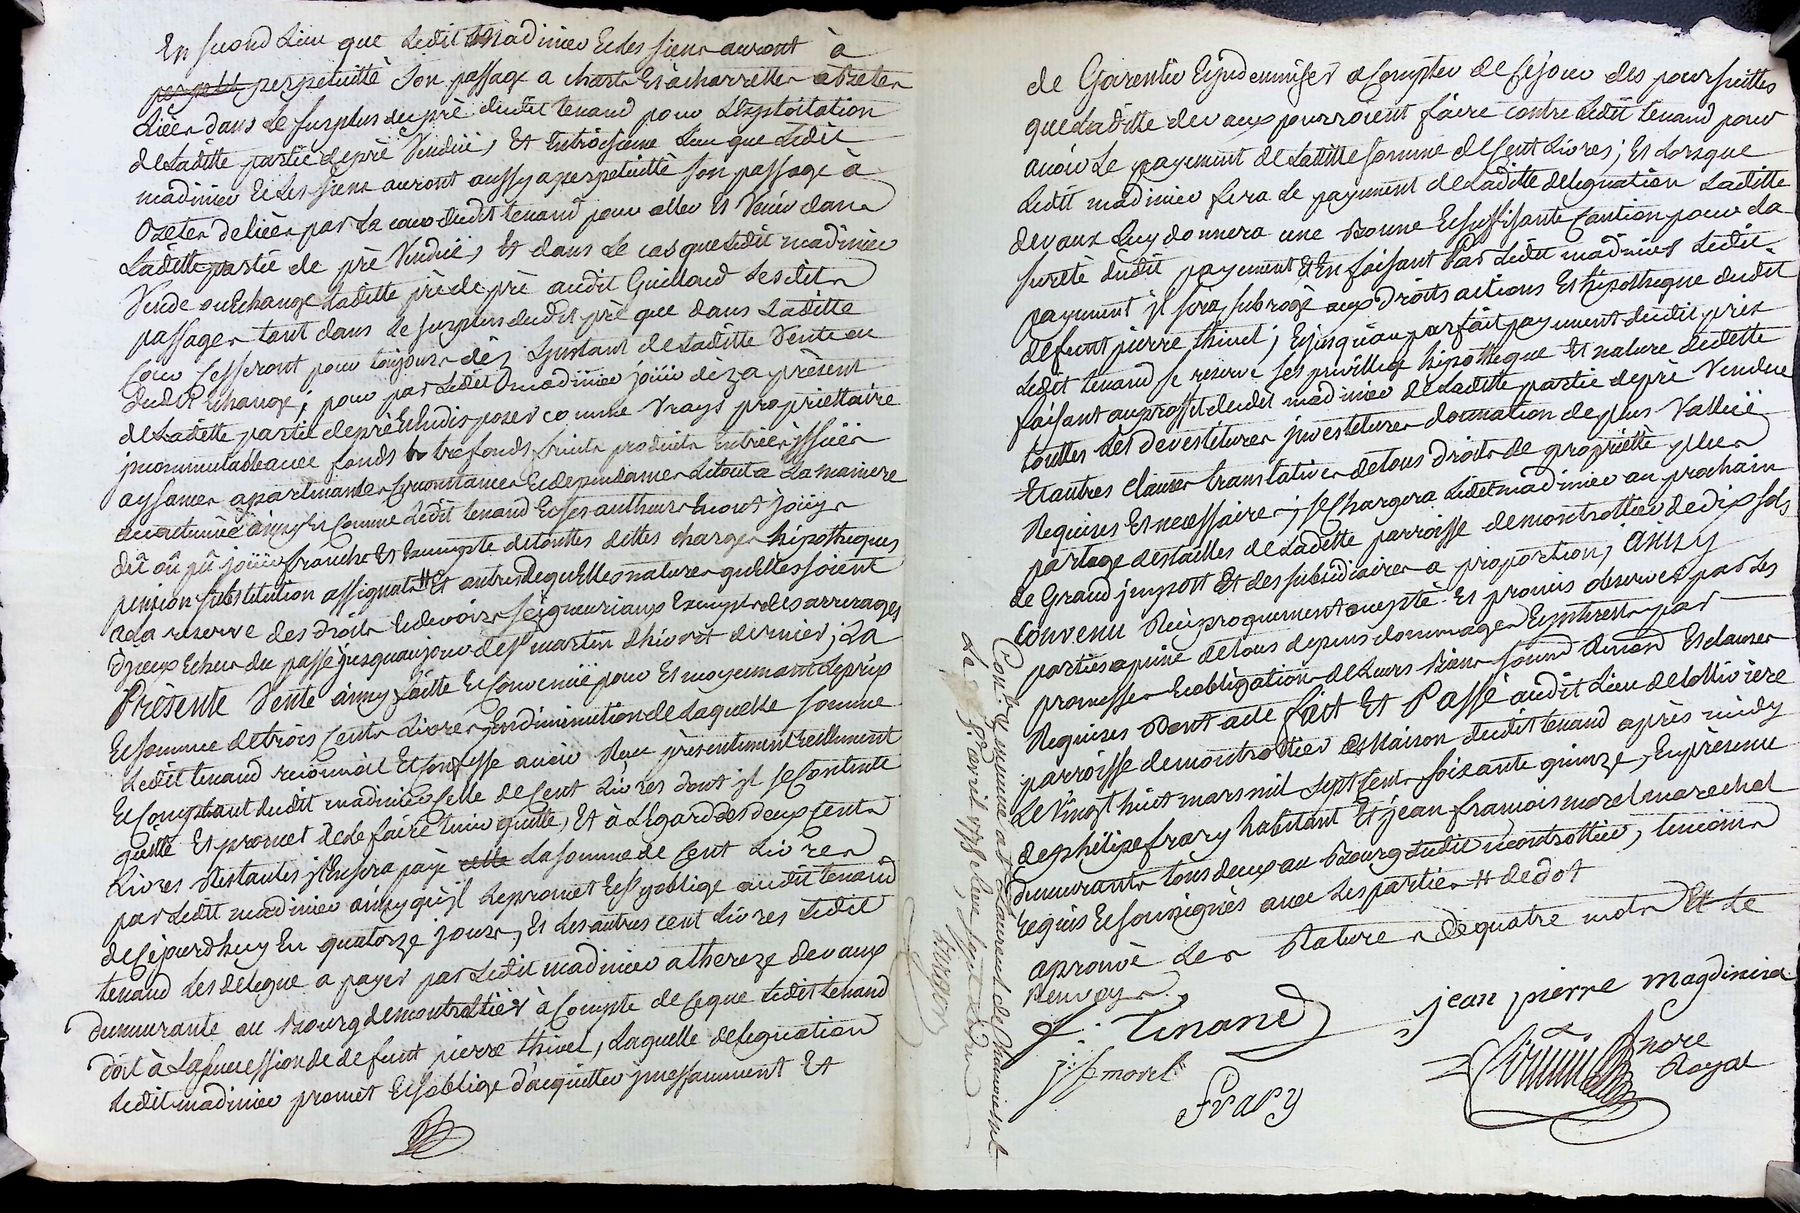 En second Lieu que Ledit Madinier et les siens auront à
perpetuitté Son passage a chart et à charrette a Bœtes
Liées dans Le surplus du prè dudit tenand pour L'exploitation
de Laditte partie de prè Vendüe, Et Entroisieme Lieu que Ledit
madinier et Les siens auront aussy a perpetuitté son passage à
Bœtes deliées par La cour dudit tenand pour aller Et Venir dans
Laditte partie de prè Vendüe, Et dans Le cas que Ledit madinier
Vende ou Echange Laditte pièce de prè audit Guillaud Lesdits
passages tant dans Le surplus dudit prè que dans Laditte
Cour Cesseront pour toujours dès L'instant de Laditte Vente ou
dudit Echange; pour par Ledit madinier joüir déz a prèsent
de Laditte partie de prè et En disposer comme Vrays propriettaire
incommutable avec fonds très fonds fruits produits Entrées issües
aysances apartenances Circonstances et dependances Le tout a La maniere
accoutumée ainsy Et Comme Ledit tenand Et ses autheurs En ont joüys
dû où pû joüir franche Et Exempte de touttes dettes charges hipotheques
pension substitution assignats # Et autres de quelles natures quelles soient
a La reserve des droits et devoirs seigneuriaux Exempts des arrerages
d'yceux Echus du passé jusqu'au jour de st martin d'hivert dernier; La
Prèsente Vente ainsy faitte et Convenüe pour Et moyennant Le prix
et somme de trois Cents Livres En diminution de Laquelle somme
Ledit tenand reconnoit Et Confesse avoir Reçu prèsentement reellement
et Comptant dudit madinier Celle de Cent Livres dont il se Contente
quitte Et promet de Le faire tenir quitte, Et à L'Egard des deux cents
Livres Restantes il En sera payé La somme de Cent Livres
par Ledit madinier ainsy qu'il Le promet et s'y oblige audit tenand
de Cejourdhuy En quatorze jours, Et Les autres cent Livres Ledit
tenand Les delegue a payer par Ledit madinier a thereze devaux
demeurante au Bourg de montrottier à Compte de Ce que Ledit tenand
doit à La succession de defunt pierre thivel, Laquelle delegnation
Ledit madinier promet et s'oblige d'acquitter incessamment Et
de Garentir Et indemniser a Compter de Cejour des poursuittes
que Laditte devaux pourroient faire contre Ledit tenand pour
avoir Le payement de Laditte somme de Cent Livres; Et Lorsque
Ledit madinier fera Le payement de Laditte delegnation Laditte
devaux Luy donnera une Bonne Et suffisante Caution pour La
sureté dudit payement Et En faisant Par Ledit madinier Ledit
payement il sera subrogé aux Droits actions Et hipotheque dudit
defunt pierre thivel; Et jusqu'au parfait payement dudit prix
Ledit tenand se reserve ses privilleg hipotheque Et nature de dette
faisant au proffit dudit madinier de Laditte partie de prè Vendüe
touttes Les devestitures investitures donnation de plus Vallüe
Et autres clauses translatives de tous droits de propriètté plus
Requises Et necessaires; se Chargera Ledit madinier au prochain
partage des tailles de Laditte parroisse de montrottier de dix sols
de Grand impost Et des subsidiaires a proportion; ainsy
Convenu Reciproquement accepté Et promis observer par Les
parties a peine de tous depens dommages Et interests par
promesses et obligation de Leurs Biens soumd Renond Et clauses
Requises Dont acte fait Et Passé audit Lieu de Lollivière
parroisse de montrottier Maison dudit tenand après midy
Le Vingt huit mars mil sept Cents soixante quinze, En prèsence
de philipe frary habitant Et jean françois morel marechal
demeurants tous deux au Bourg dudit montrottier, temoins
requis Et soussignés avec Les parties # de dot
aprouvé Les Rature de quatre mots Et Le
Renvoys.
f. Tinand
jean pierre magdinier
j. f. morel
Frary
Nore
Royal
Con.lé & insinué a St Laurent de Chamousset
Le avril 1775